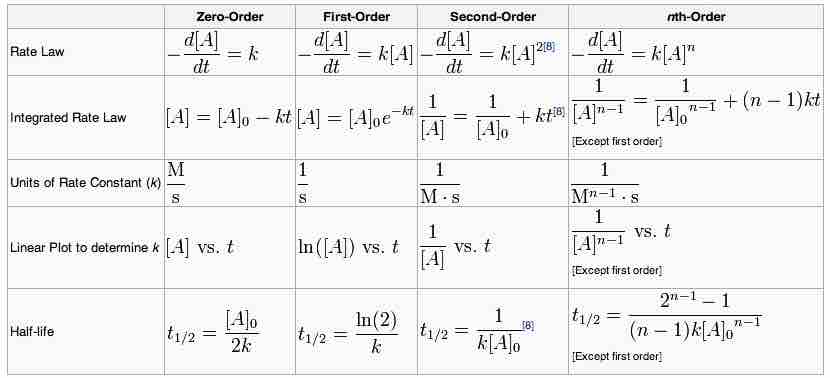 Zero-Order First-Order Second-Order nth-Order
Rate Law −d[A]/dt = k −d[A]/dt = k[A] −d[A]/dt = k[A]²[8] −d[A]/dt = k[A]ⁿ
Integrated Rate Law [A] = [A]₀ − kt [A] = [A]₀e^(−kt) 1/[A] = 1/[A]₀ + kt[8] 1/[A]^(n−1) = 1/[A]₀^(n−1) + (n − 1)kt
[Except first order]
Units of Rate Constant (k) M/s 1/s 1/(M · s) 1/(M^(n−1) · s)
Linear Plot to determine k [A] vs. t ln([A]) vs. t 1/[A] vs. t 1/[A]^(n−1) vs. t
[Except first order]
Half-life t_(1/2) = [A]₀/2k t_(1/2) = ln(2)/k t_(1/2) = 1/k[A]₀[8] t_(1/2) = (2^(n−1) − 1)/((n − 1)k[A]₀^(n−1))
[Except first order]